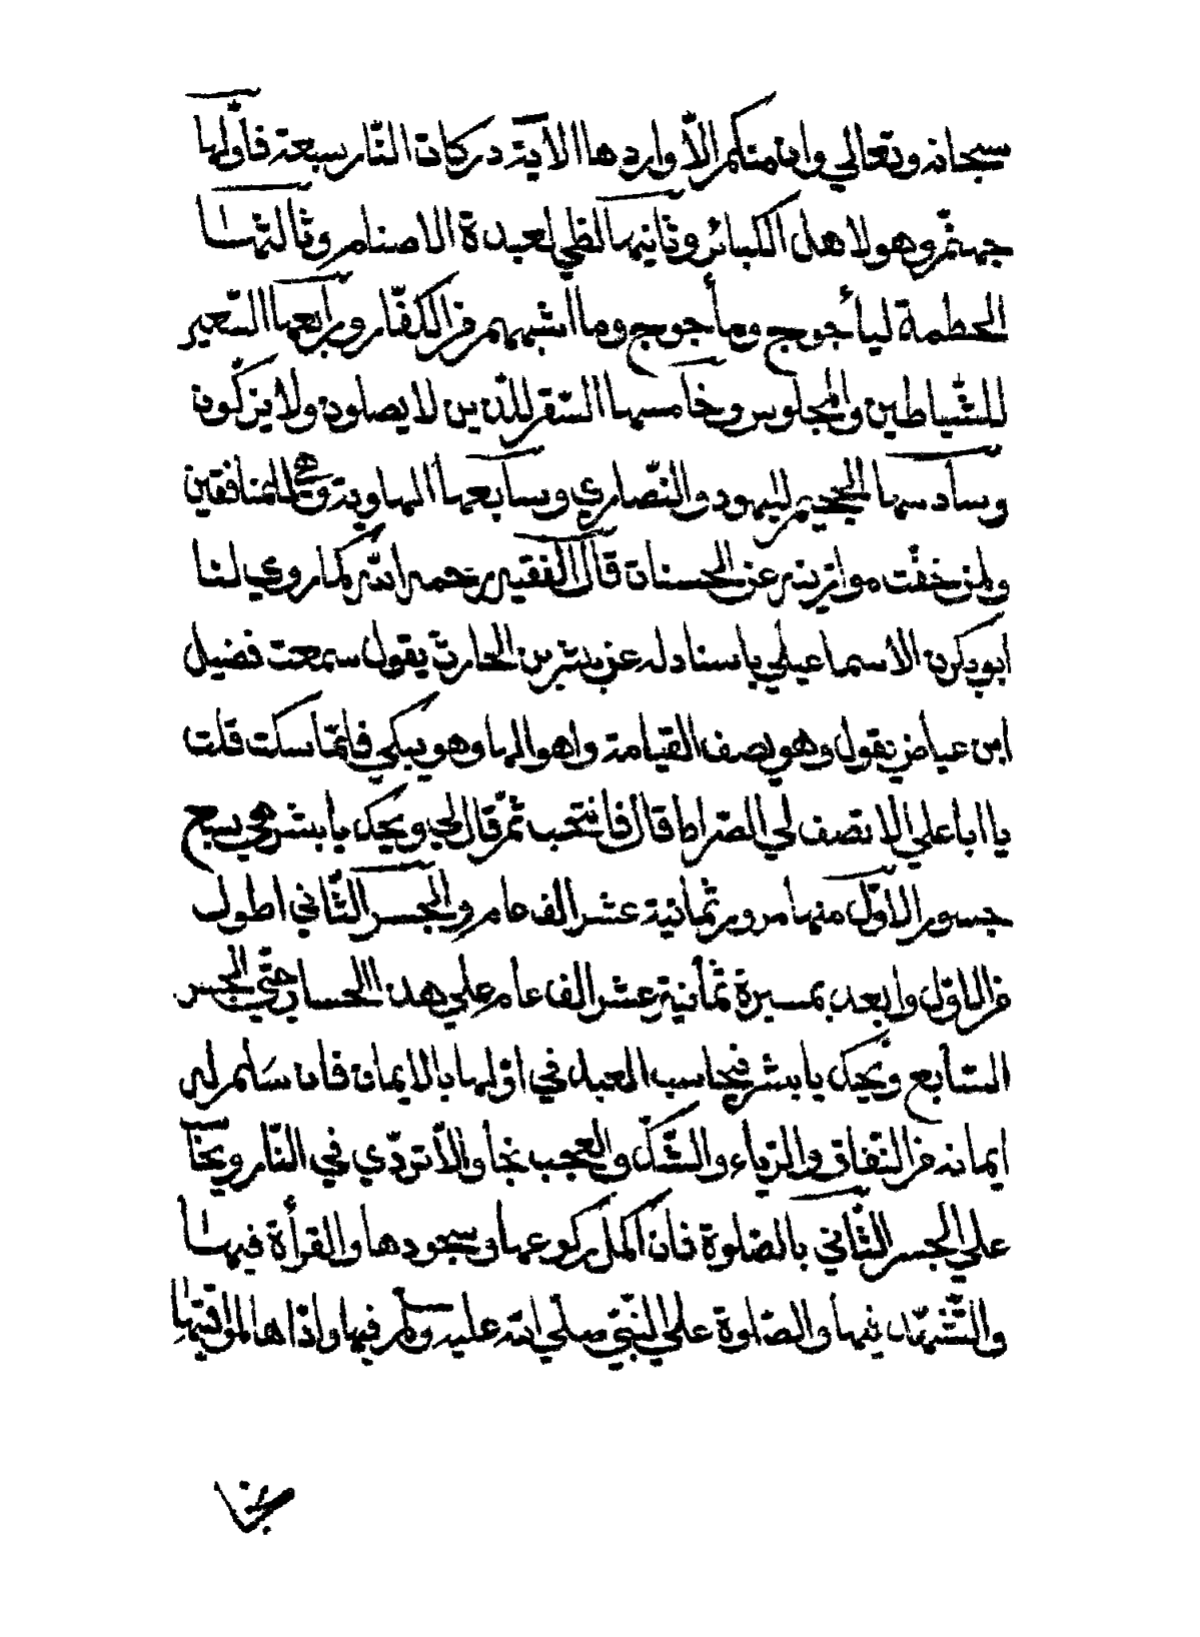 سبحانه وتعالي وان منكم الاّ واردها الآية دركات النّار سبعة فاوّلها
جهنّم وهو لاهل الكبائر وثانيها لظي لعبدة الاصنام وثالثها
الحطمة ليأجوج ومأجوج وما اشبههم من الكفّار ورابعها السّعير
للشّياطين والمجلوس وخامسها السّقر للذين لا يصلون ولا يزكّون
وسادسها الجحيم لليهود والنّصاري وسابعها الهاوية وهي للمنافقين
ولمن خفّت موازينه عن الحسنات قال الفقيه رحمه الله كما روي لنا
ابو بكرن الاسماعيلي باسناد له عن بشر بن الحارث يقول سمعت فضيل
ابن عياض يقول وهو يصف القيامة واهوالها وهو يبكي فلمّا سكت قلت
يا ابا علي الا تصف لي الصّراط قال فانتحب ثمّ قال لي ويحك يا بشر هي سبع
جسور الاوّل منها مرور ثمانية عشر الف عام والجسر الثّاني اطول
من الاوّل وابعد بمسيرة ثمانية عشر الف عام علي هذا الحساب حتّي الجسر
السّابع ويحك يا بشر فيحاسب العبد في اوّلها بالايمان فان سَلِم له
ايمانه من النّفاق والرّياء والشّكّ والعجب نجا والاّ تردّي في النّار ويحا
علي الجسر الثّاني بالصّلوة فان اكمل ركوعها وسجودها والقرأة فيها
والتّشهّد فيها والصّلوة علي النّبيّ صلّي الله عليه وسلم فيها واذاها لمواقيتها
نجا